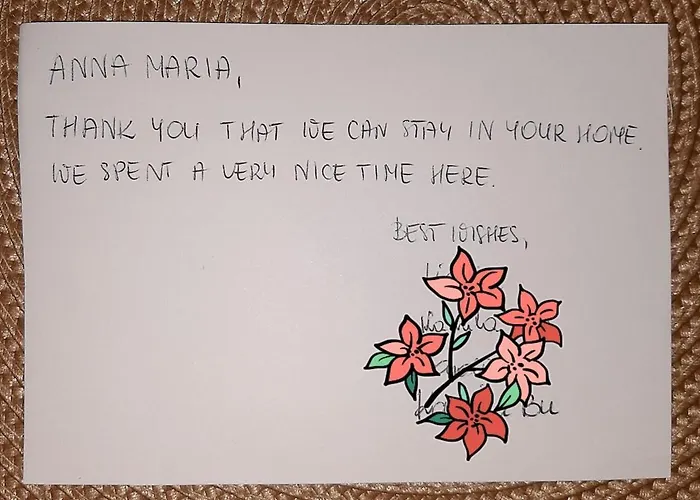 ANNA MARIA,
THANK YOU THAT WE CAN STAY IN YOUR HOME.
WE SPENT A VERY NICE TIME HERE.
BEST WISHES,